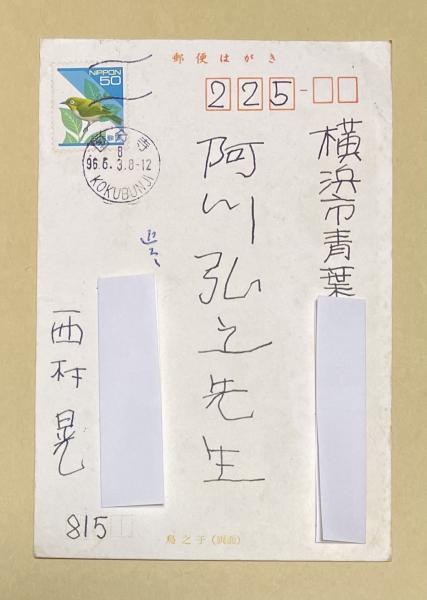 郵便はがき
225
横浜市青葉
阿川弘之先生
西村晃
815
NIPPON
50
96.6.3.8-12
KOKUBUNJI
鳥之子(両面)